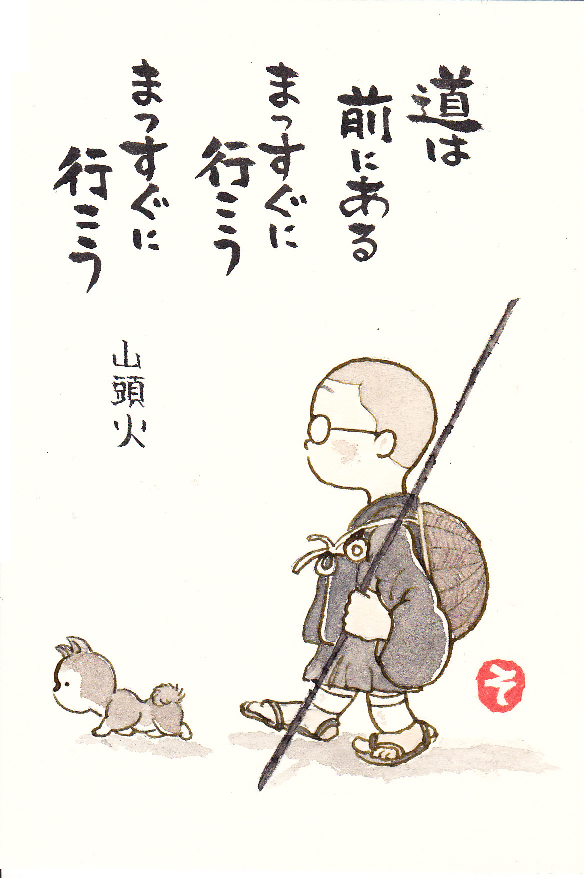 道は
前にある
まっすぐに
行こう
まっすぐに
行こう
山頭火
そ